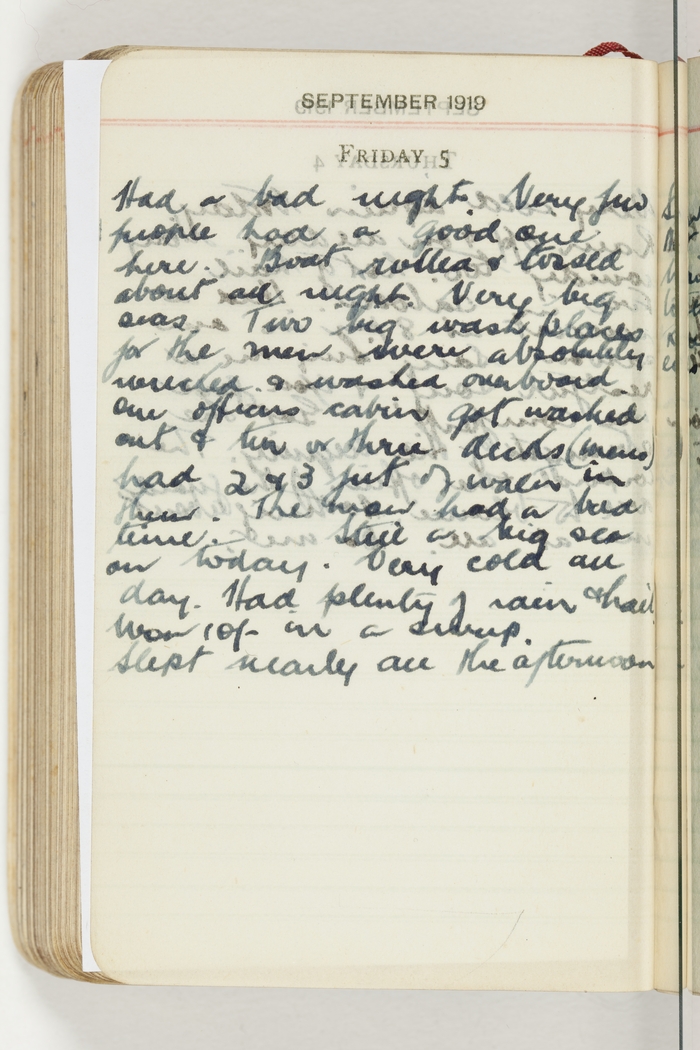 SEPTEMBER 1919
FRIDAY 5
Had a bad night. Very few
people had a good one
here. Boat rolled & tossed
about all night. Very big
seas. Two big wash places
for the men were absolutely
wrecked & washed overboard.
One officers cabin got washed
out & two or three decks (mens)
had 2 & 3 feet of water in
them. The men had a bad
time. Still a big sea
on today. Very cold all
day. Had plenty of rain & hail
Won 10/- in a sweep.
Slept nearly all the afternoon